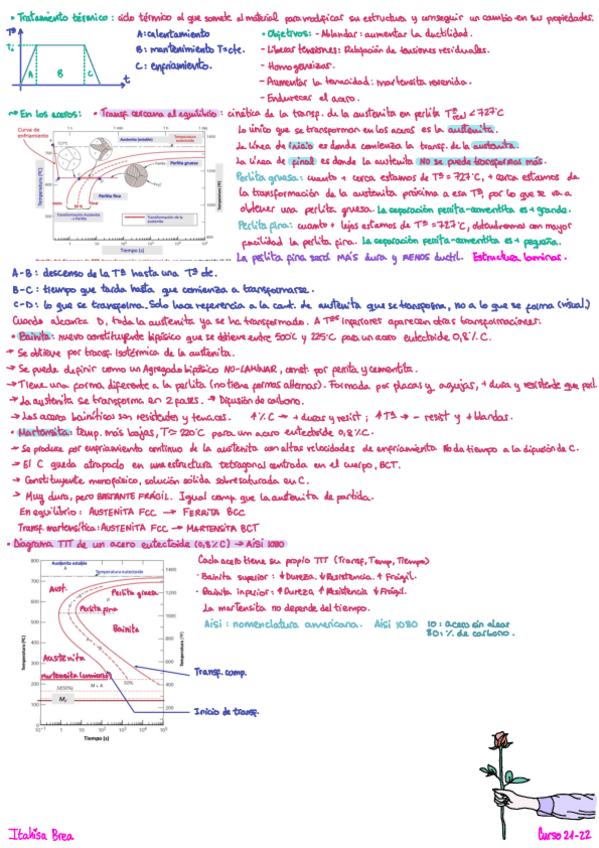 • Tratamiento térmico: ciclo térmico al que somete al material para modificar su estructura y conseguir un cambio en sus propiedades.
Tª
T₀
A
B
C
t
A: calentamiento
B: mantenimiento T=cte.
C: enfriamiento.
• Objetivos: - Ablandar: aumentar la ductilidad.
- Liberar tensiones: Relajación de tensiones residuales.
- Homogeneizar.
- Aumentar la tenacidad: martensita revenida.
- Endurecer el acero.
→ En los aceros: • Transf. cercana al equilibrio: cinética de la transf. de la austenita en perlita
Curva de enfriamiento
Austenita (estable)
Temperatura eutectoide
Perlita gruesa
Perlita fina
Transformación Austenita
Transformación de la austenita
Temperatura (ºC)
Tiempo (s)
Lo único que se transforma en los aceros es la austenita.
La línea de inicio es donde comienza la transf. de la austenita.
La línea de final es donde la austenita NO se puede transformar más.
Perlita gruesa: cuanto + cerca estamos de Tª = 727ºC, + cerca estamos de
la transformación de la austenita próxima a esa Tª, por lo que se va a
obtener una perlita gruesa. La separación ferrita-cementita es + grande.
Perlita fina: cuanto + lejos estemos de Tª = 727ºC, obtendremos con mayor
facilidad la perlita fina. La separación ferrita-cementita es + pequeña.
La perlita fina será MÁS dura y MENOS dúctil. Estructura laminar.
A-B: descenso de la Tª hasta una Tª cte.
B-C: tiempo que tarda hasta que comienza a transformarse.
C-D: lo que se transforma. Solo hace referencia a la cant. de austenita que se transforma, no a lo que se forma (visual)
Cuando alcanza D, toda la austenita ya se ha transformado. A Tªs inferiores aparecen otras transformaciones.
• Bainita: nuevo constituyente bifásico que se obtiene entre 500ºC y 225ºC para un acero eutectoide 0,8%C.
→ Se obtiene por transf. isotérmica de la austenita.
→ Se puede definir como un Agregado bifásico NO-LAMINAR, const. por ferrita y cementita.
→ Tiene una forma diferente a la perlita (no tiene formas alternas). Formada por placas y agujas, + dura y resistente que perl.
→ La austenita se transforma en 2 fases. → Difusión de carbono.
→ Los aceros bainíticos son resistentes y tenaces. ↑%C → + duras y resist; ↑Tª → - resist y + blandas.
• Martensita: temp. más bajas, T≈220ºC para un acero eutectoide 0,8%C.
→ Se produce por enfriamiento continuo de la austenita con altas velocidades de enfriamiento. No da tiempo a la difusión de C.
→ El C queda atrapado en una estructura tetragonal centrada en el cuerpo, BCT.
→ Constituyente monofásico, solución sólida sobresaturada en C.
→ Muy dura, pero BASTANTE FRÁGIL. Igual comp. que la austenita de partida.
En equilibrio: AUSTENITA FCC → FERRITA BCC
Transf. martensítica: AUSTENITA FCC → MARTENSITA BCT
• Diagrama TTT de un acero eutectoide (0,8%C) → Aisi 1080
Austenita estable
Temperatura eutectoide
Aust.
Perlita gruesa
Perlita fina
Bainita
Austenita
M + A
50%
Temperatura (ºC)
Tiempo (s)
Transf. comp.
Inicio de transf.
Cada acero tiene su propio TTT (Transf, Temp, Tiempo)
- Bainita superior: ↓Dureza. ↓Resistencia. ↑Frágil.
- Bainita inferior: ↑Dureza ↑Resistencia ↓Frágil.
La martensita no depende del tiempo.
Aisi: nomenclatura americana. Aisi 1080
10: acero sin alear
80: % de carbono.
Itahisa Brea
Curso 21-22